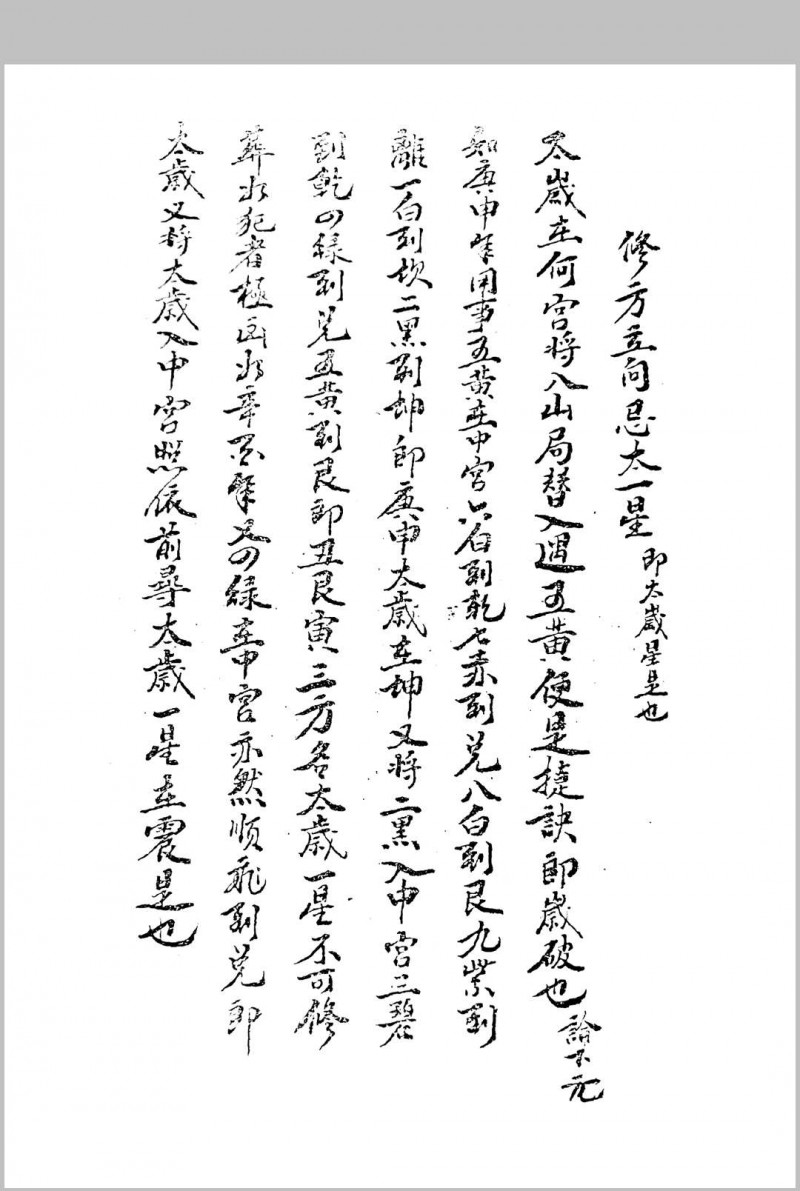 修方立向忌太一星 即太歲星是也
太歲在何宮將八山局替入遇五黃便是捷訣即歲破也 論下元
如庚申年用事五黃在中宮六白到乾七赤到兌八白到艮九紫到
離一白到坎二黑到坤即庚申太歲在坤又將二黑入中宮三碧
到乾四綠到兌五黃到艮即丑艮寅三方名太歲一星不可修
葬犯者極凶辛酉年又四綠在中宮亦然順飛到兌即
太歲又將太歲入中宮照依前尋太歲一星在震是也